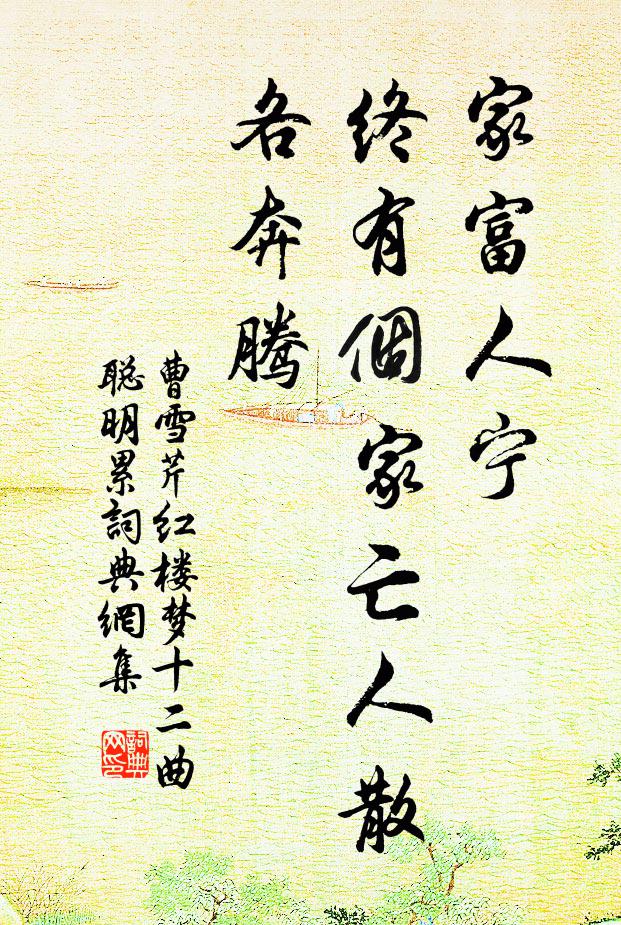 家富人宁
终有個家亡人散
各奔腾
曹雪芹红楼梦十二曲
聪明累詞典網集
詞典网印